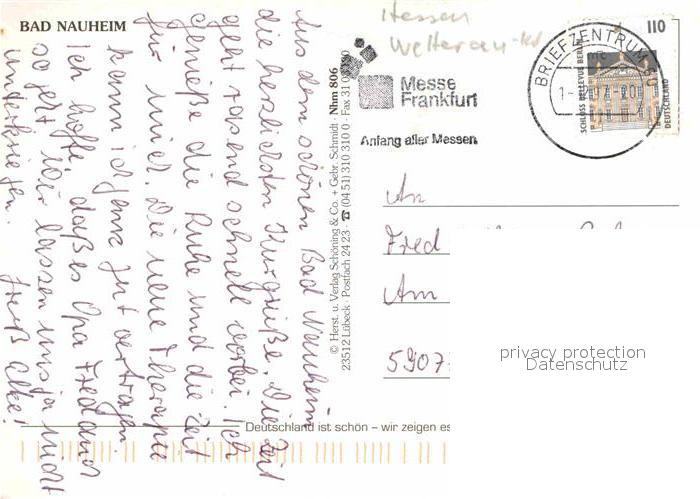 BAD NAUHEIM
Hessen
Wetterau-
Messe
Frankfurt
Anfang aller Messen.
BRIEFZENTRUM 60
110
SCHLOSS BELLEVUE BERLIN
DEUTSCHLAND
Aus dem schönen Bad Nauheim
die herzlichsten Kurgrüße. Die Zeit
geht rasend schnell vorbei. Ich
genieße die Ruhe und die Zeit
für mich. Die neue Therapie
kann ich ganz gut vertragen
Ich hoffe, daß es Opa Fred auch
so geht. Wir lassen uns ja nicht
unterkriegen.
Gruß
© Herst. u. Verlag Schöning & Co. + Gebr. Schmidt · Nhm 806
23512 Lübeck · Postfach 24 23 · ☎ (04 51) 310 310 0 · Fax 31 03
An
Fred
Am
5907
privacy protection
Datenschutz
Deutschland ist schön – wir zeigen es